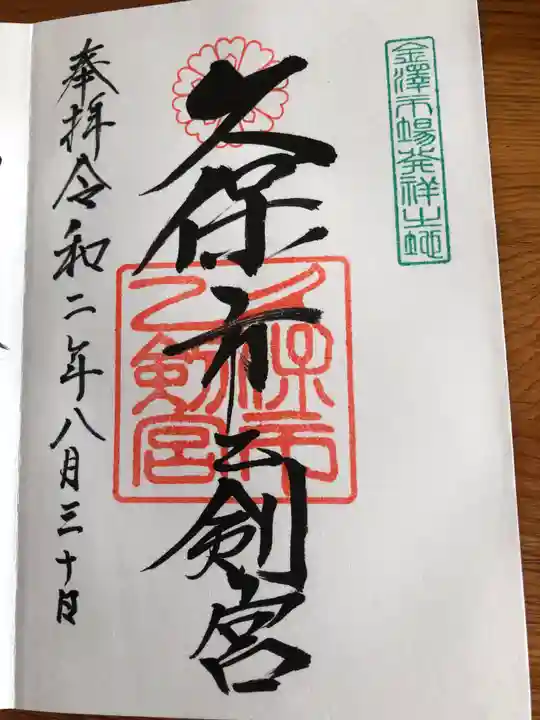 金澤市場発祥之地
久保市乙剣宮
久保市乙剣宮
奉拝令和二年八月三十日